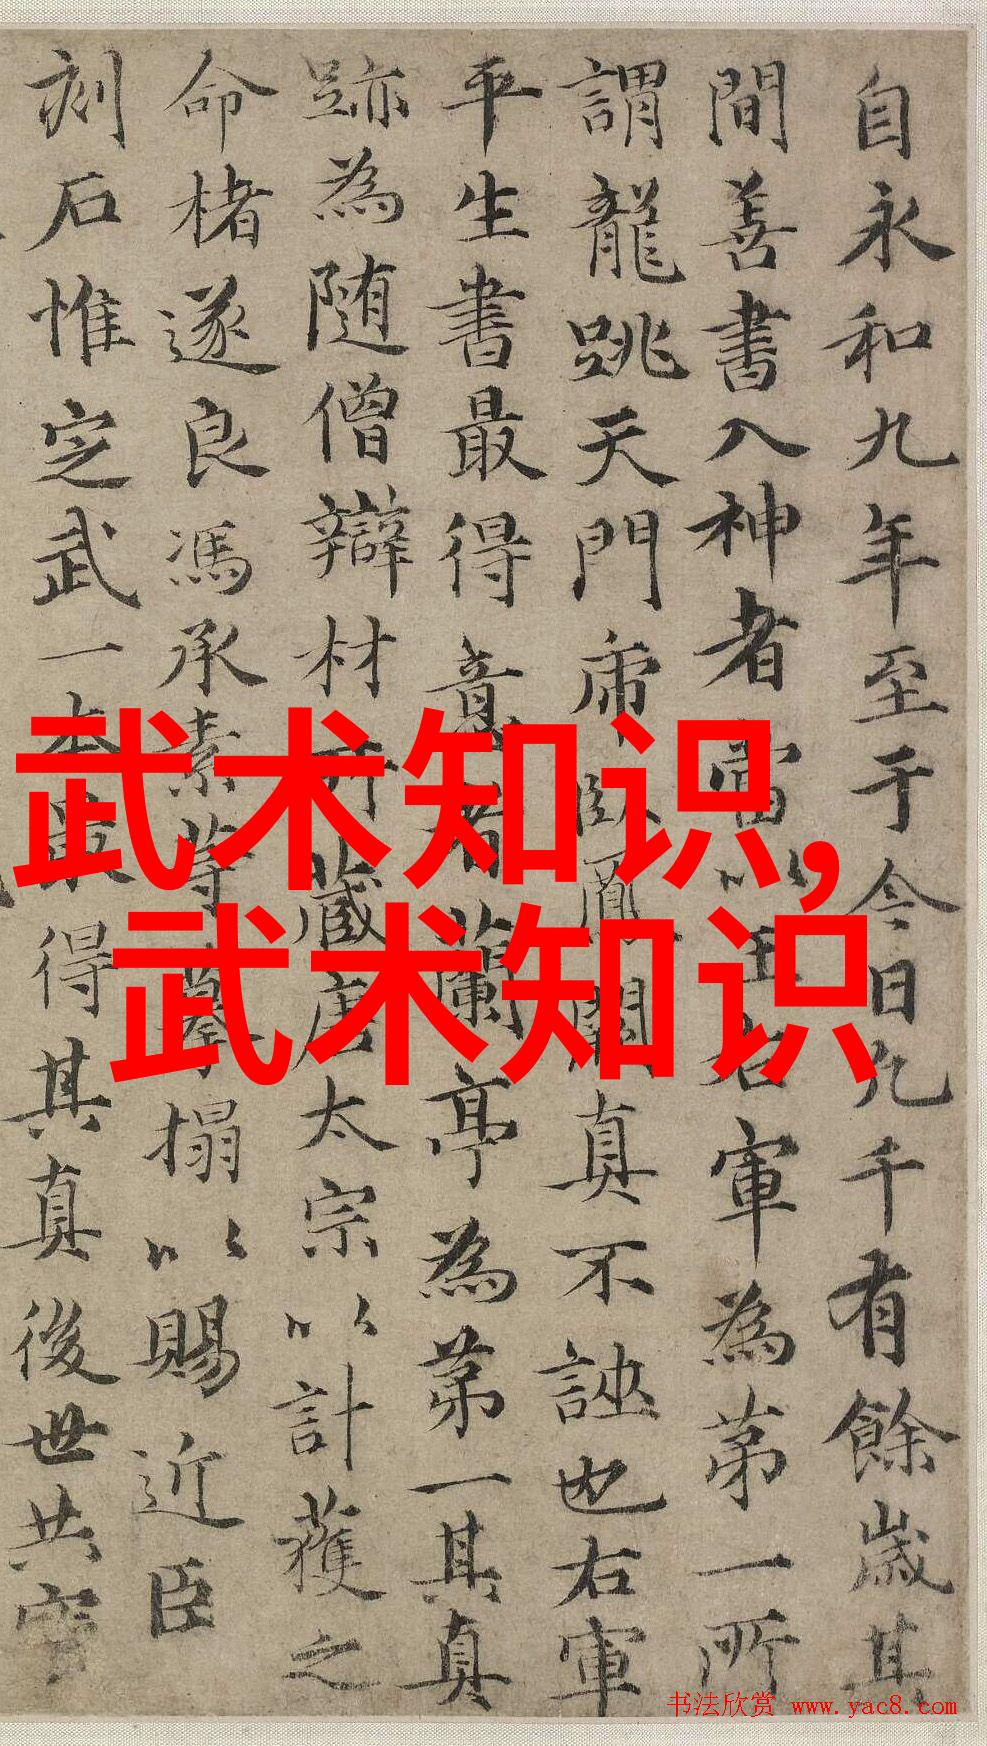 自永和九年至于今日凡千有餘歲其
間善書入神者當以王右軍為第一所
謂龍跳天門虎臥鳳閣真不誣也右軍
平生書最得意者蘭亭為第一其真
跡為随僧辯材所藏唐太宗以計獲之
命楮遂良馮承素等摹搨以賜近臣
刻石惟定武一本最得其真後世共寳
武术知识,
武术知识
书法欣赏 www.yac8.com